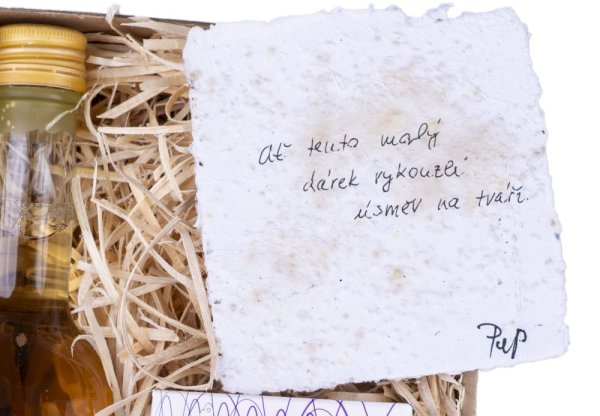 Ať tento malý
dárek vykouzlí
úsměv na tváři.
PuP